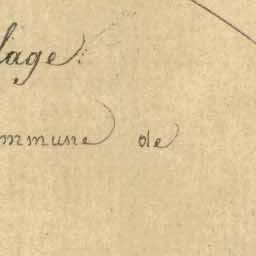 lage.
mmune de